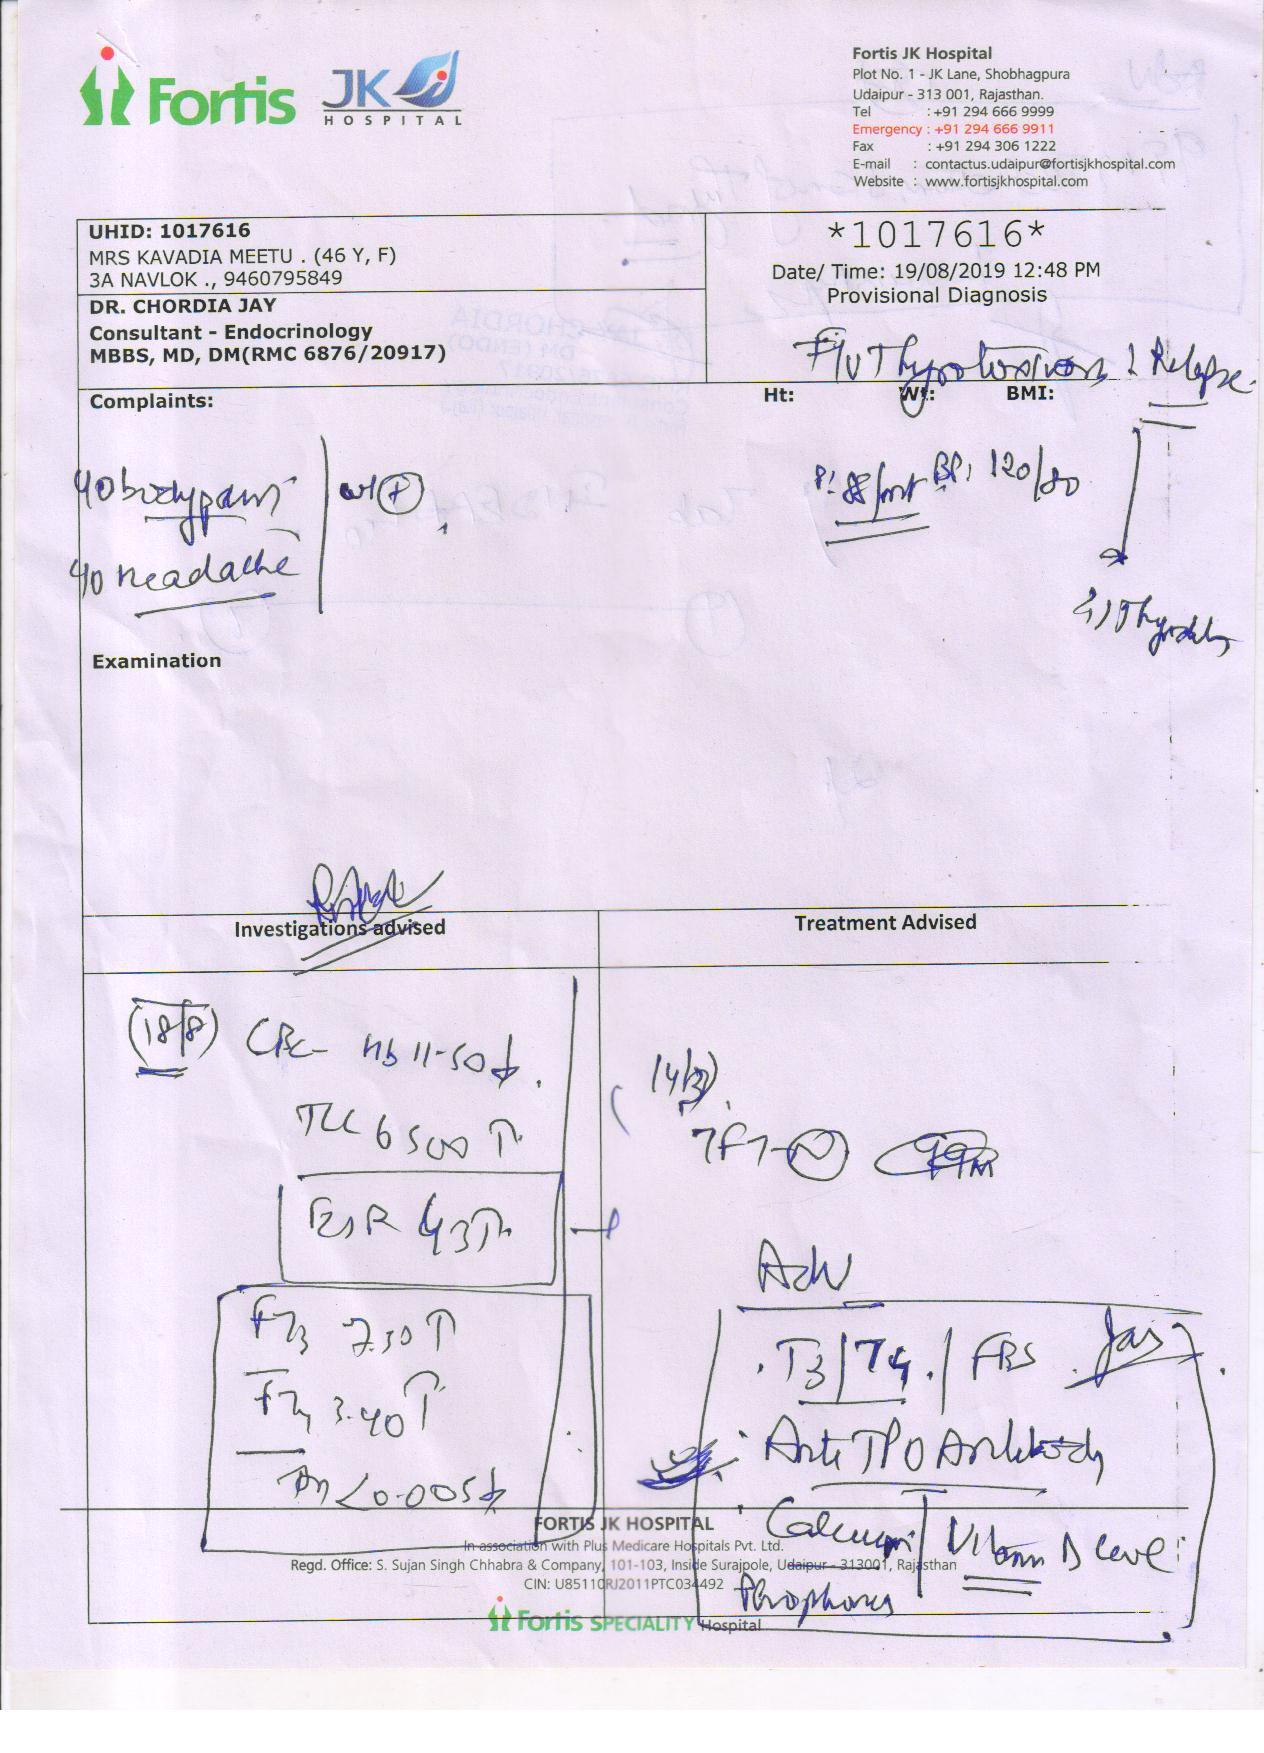 Fortis
JK
HOSPITAL
Fortis JK Hospital
Plot No. 1 - JK Lane, Shobhagpura
Udaipur - 313 001, Rajasthan.
Tel : +91 294 666 9999
Emergency : +91 294 666 9911
Fax : +91 294 306 1222
E-mail : contactus.udaipur@fortisjkhospital.com
Website : www.fortisjkhospital.com
UHID: 1017616
MRS KAVADIA MEETU . (46 Y, F)
3A NAVLOK ., 9460795849
DR. CHORDIA JAY
Consultant - Endocrinology
MBBS, MD, DM(RMC 6876/20917)
*1017616*
Date/ Time: 19/08/2019 12:48 PM
Provisional Diagnosis
Relapse
Complaints:
Ht: Wt: BMI:
bodypains
headache
BP: 120/80
Examination
Investigations advised
Treatment Advised
(18/8) CBC- Hb 11.50↓
TLC 6500
ESR 43↑
FT3 7.30↑
FT4 3.40↑
<0.005↓
TFT-N
Adv
T3/T4 / FBS
Anti TPO Antibody
Calcium / Vitamin D level
Phosphorus
FORTIS JK HOSPITAL
In association with Plus Medicare Hospitals Pvt. Ltd.
Regd. Office: S. Sujan Singh Chhabra & Company, 101-103, Inside Surajpole, Udaipur - 313001, Rajasthan
CIN: U85110RJ2011PTC034492
Fortis SPECIALITY Hospital